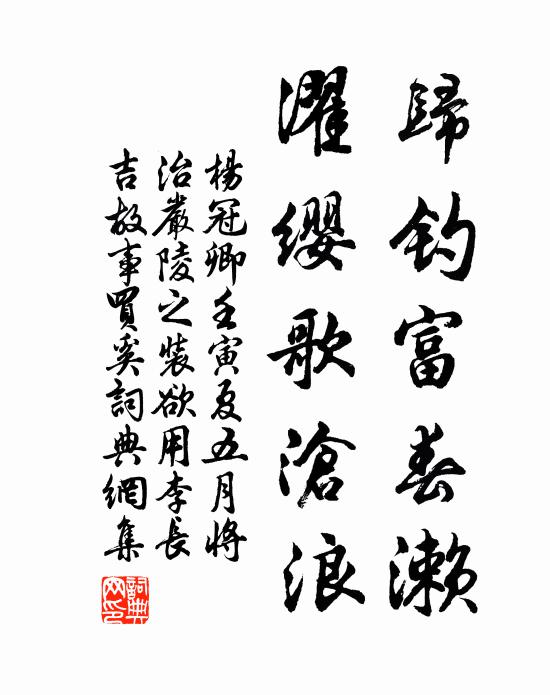 歸釣富春瀨
濯纓歌滄浪
楊冠卿壬寅夏五月將
治嚴陵之裝欲用李長
吉故事買奚詞典網集
詞典網印